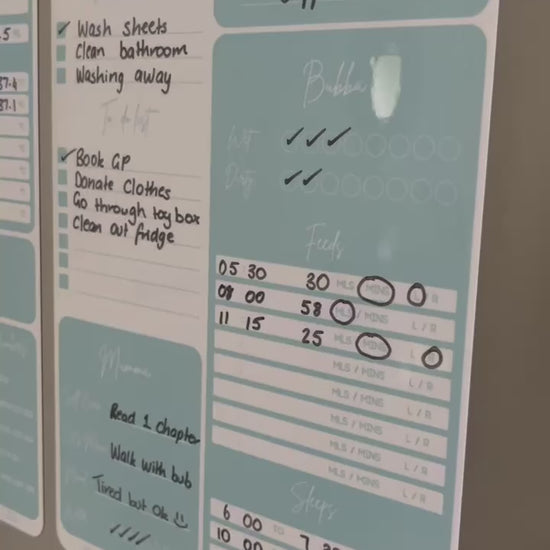 ✓ Wash sheets
Clean bathroom
Washing away
To do list
✓ Book GP
Donate Clothes
Go through toy box
Clean out fridge
Mumma
Read 1 chapter
Walk with bub
Tired but Ok ☺
✓✓✓✓
.5
37.4
37.1
Bubba
Wet ✓✓✓
Dirty ✓✓
Feeds
05 30 30 MLS / MINS L / R
08 00 58 MLS / MINS L / R
11 15 25 MLS / MINS L
MLS / MINS L / R
MLS / MINS L / R
MLS / MINS L / R
MLS / MINS L / R
MLS / MINS L / R
Sleeps
6 00 TO 7
10 00